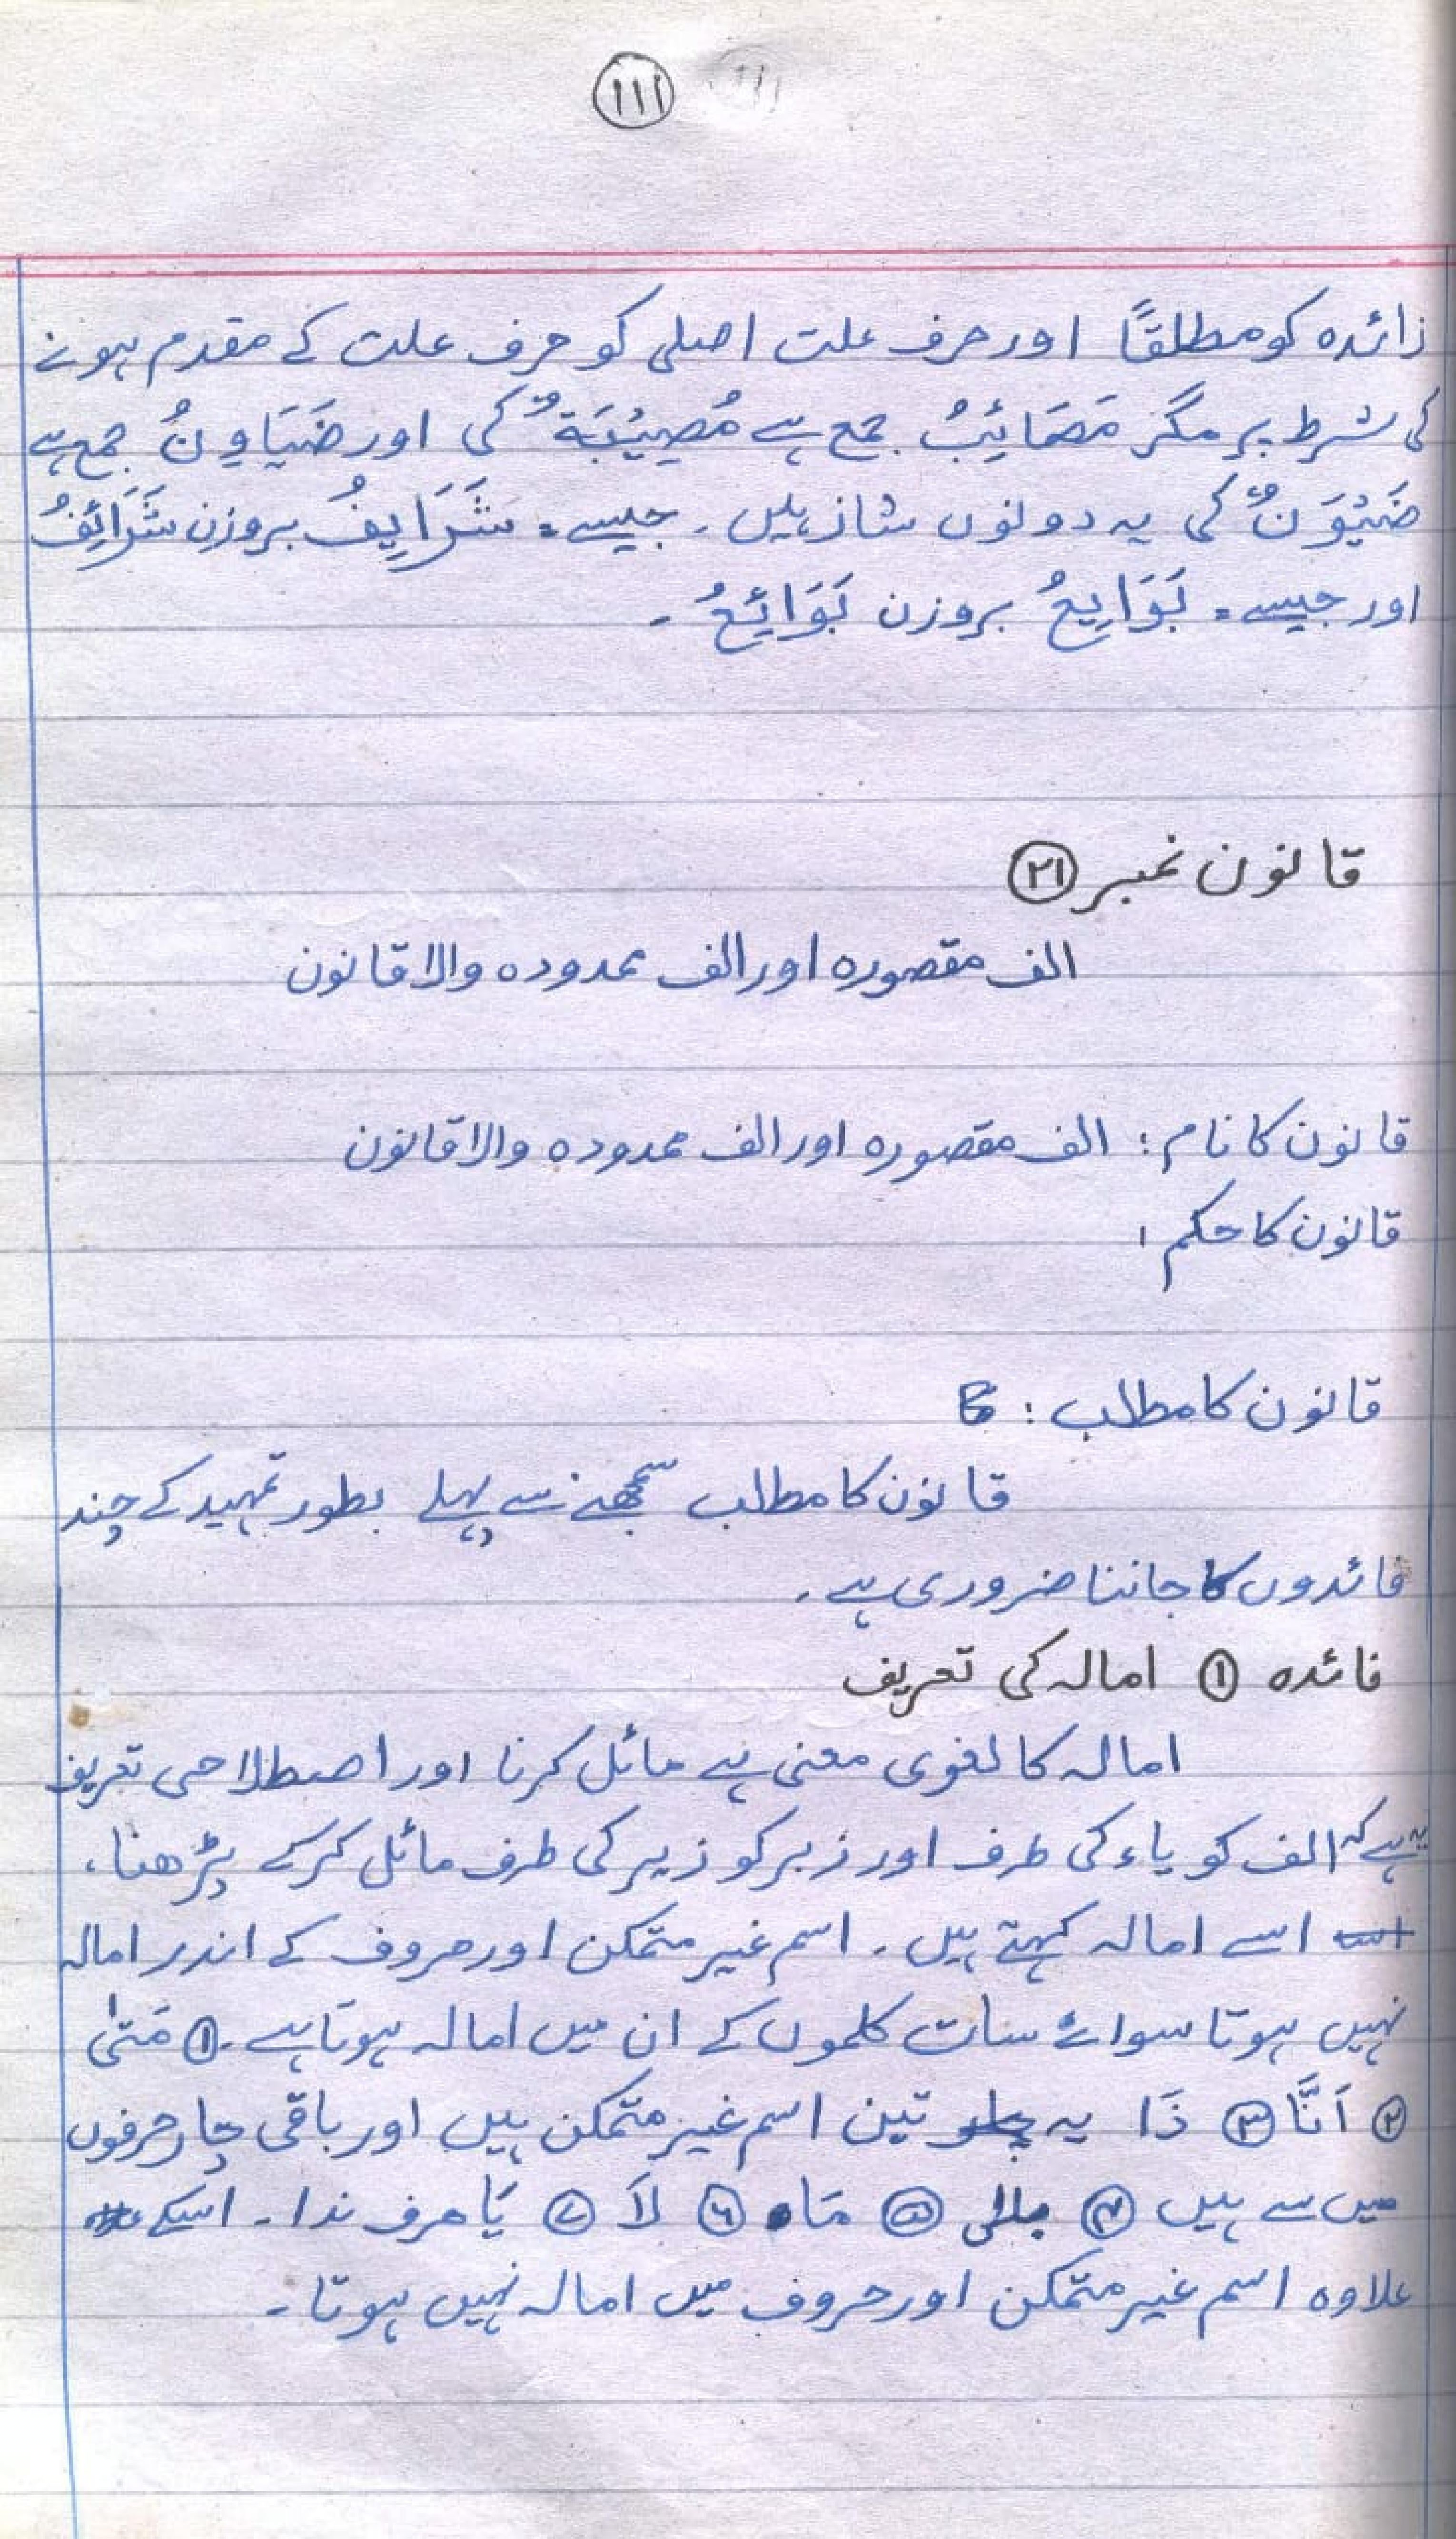 ۱۱۱
زائدہ کو مطلقًا اور حرف علت اصلی کو حرف علت کے مقدم ہونے
کی شرط پر مگر مَصَائِبُ جمع ہے مُصِیْبَۃٌ کی اور ضَیَاوِنُ جمع ہے
ضَیْوَنٌ کی یہ دونوں شاذ ہیں۔ جیسے۔ شَرَایِفُ بروزن شَرَائِفُ
اور جیسے۔ بَوَایِعُ بروزن بَوَائِعُ ۔
قانون نمبر ۲۱
الف مقصورہ اور الف ممدودہ والا قانون
قانون کا نام : الف مقصورہ اور الف ممدودہ والا قانون
قانون کا حکم :
قانون کا مطلب :
قانون کا مطلب سمجھنے سے پہلے بطور تمہید کے چند
فائدوں کا جاننا ضروری ہے۔
فائدہ ① امالہ کی تعریف
امالہ کا لغوی معنی ہے مائل کرنا اور اصطلاحی تعریف
یہ ہے کہ الف کو یاء کی طرف اور زبر کو زیر کی طرف مائل کرکے پڑھنا،
اسے امالہ کہتے ہیں۔ اسم غیر متمکن اور حروف کے اندر امالہ
نہیں ہوتا سوائے سات کلموں کے ان میں امالہ ہوتا ہے۔ ① مَتیٰ
② اَنَّا ③ ذَا یہ تین اسم غیر متمکن ہیں اور باقی چار حرفوں
میں سے ہیں ④ بلی ⑤ مَا ⑥ لَا ⑦ یَا حرف ندا۔ اسکے
علاوہ اسم غیر متمکن اور حروف میں امالہ نہیں ہوتا۔